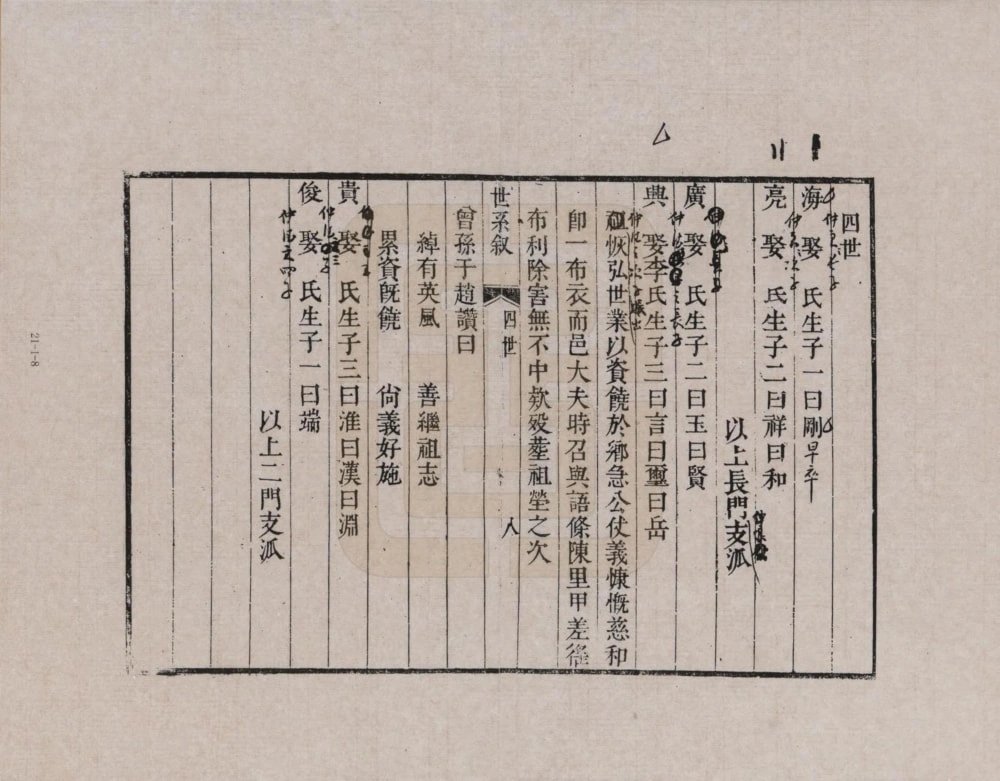 四世
海 娶 氏生子一曰剛早卒
亮 娶 氏生子二曰祥曰和
以上長門支派
廣 娶 氏生子二曰玉曰賢
興 娶李氏生子三曰言曰璽曰岳
祖恢弘世業以資饒於鄉急公仗義慷慨慈和
卽一布衣而邑大夫時召與語條陳里甲差徭
布利除害無不中欵歿塟祖塋之次
世系叙 四世 八
曾孫于趙讚曰
綽有英風 善繼祖志
累資旣饒 尙義好施
貴 娶 氏生子三曰淮曰漢曰淵
俊 娶 氏生子一曰端
仲浩之四子
以上二門支派
21-1-8